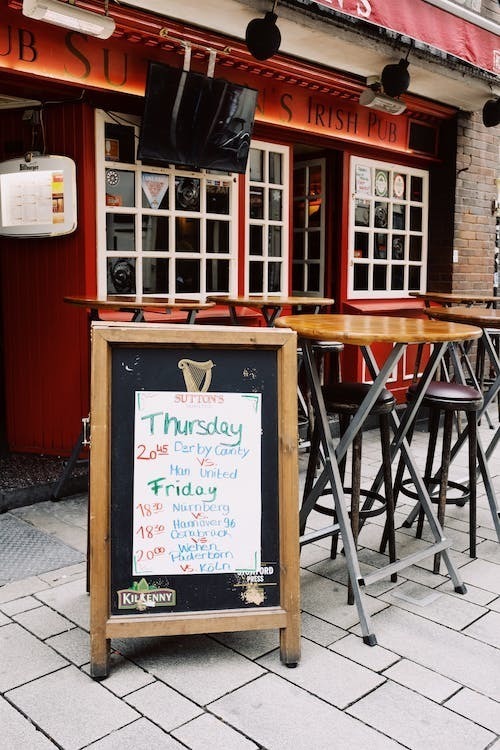 UB SU
N'S IRISH PUB
SUTTON'S
Thursday
20⁴⁵ Derby County
vs.
Man United
Friday
18³⁰ Nürnberg
vs.
18³⁰ Hannover 96
Osnabrück
20³⁰ Wehen
vs.
Paderborn
vs. Köln
KILKENNY
PRESS